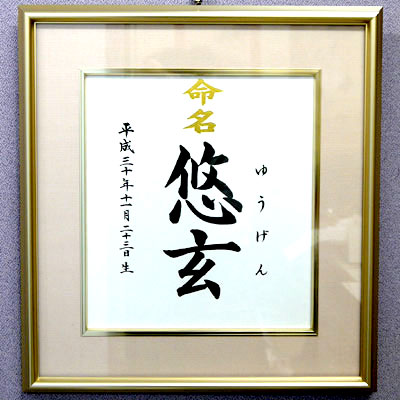 命名
悠玄
ゆうげん
平成三十年十一月二十三日生